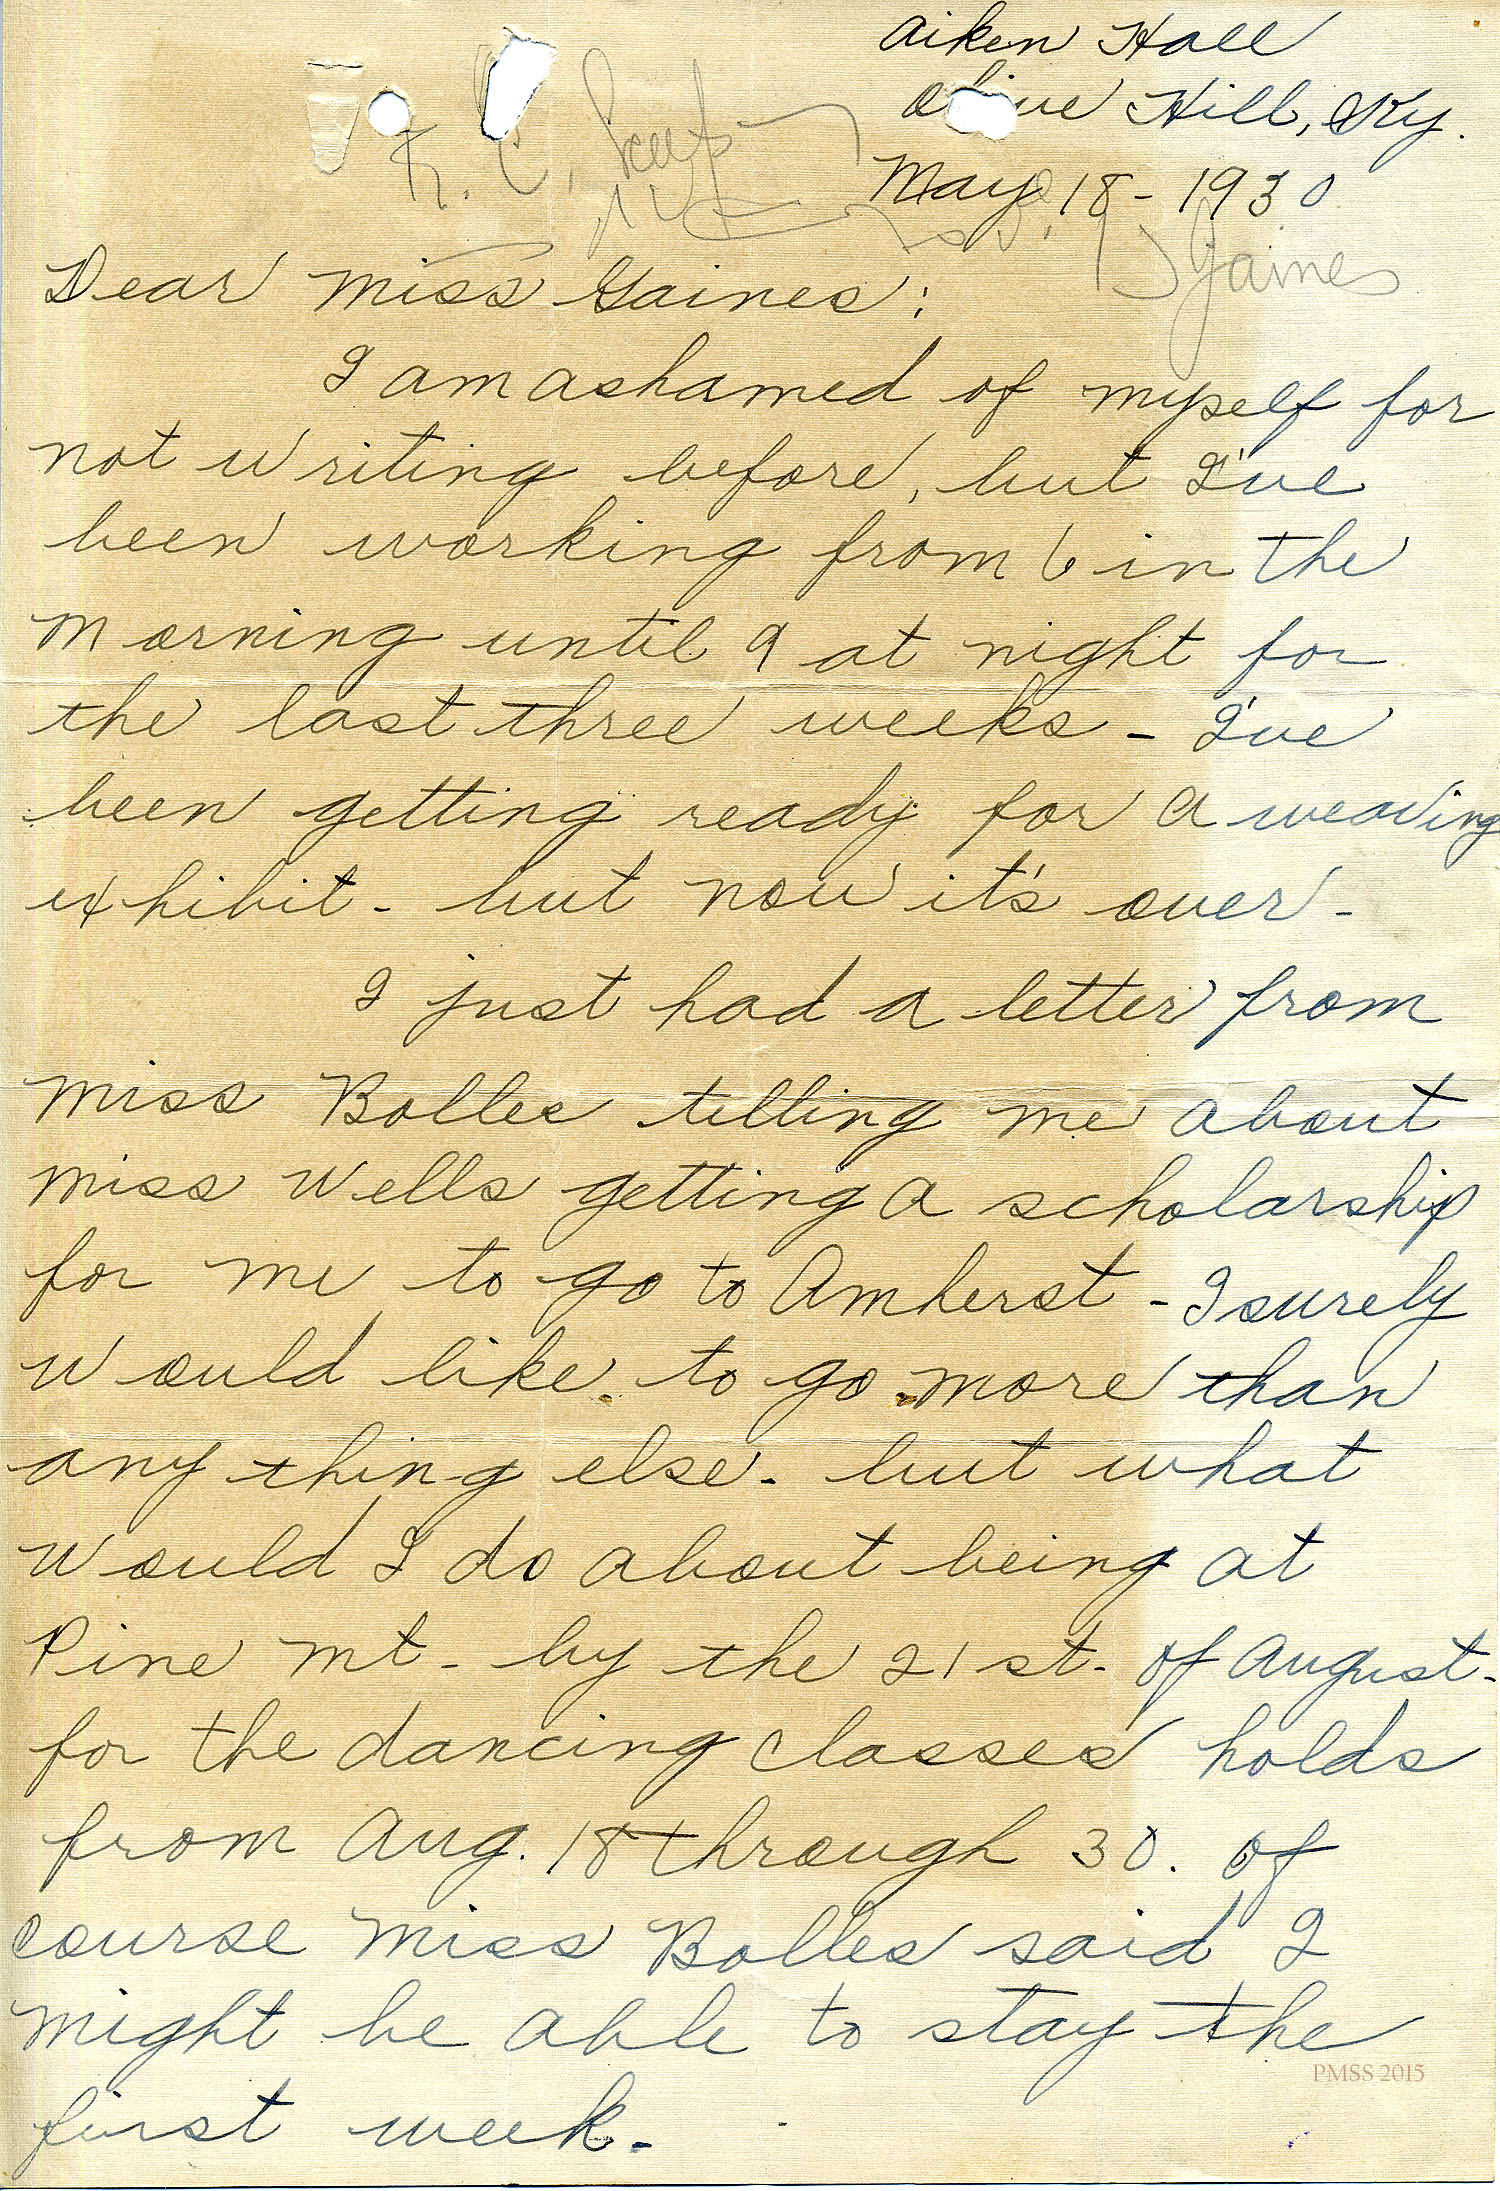 Aiken Hall
Olive Hill, Ky.
May 18 - 1930
Gaines
Dear Miss Gaines:
I am ashamed of myself for
not writing before, but I've
been working from 6 in the
morning until 9 at night for
the last three weeks - I've
been getting ready for a weaving
exhibit - but now it's over -
I just had a letter from
Miss Bolles telling me about
Miss Wells getting a scholarship
for me to go to Amherst - I surely
would like to go more than
any thing else - but what
would I do about being at
Pine Mt - by the 21 st. of August -
for the dancing classes holds
from Aug. 18 through 30. Of
course Miss Bolles said I
might be able to stay the
first week -
PMSS 2015